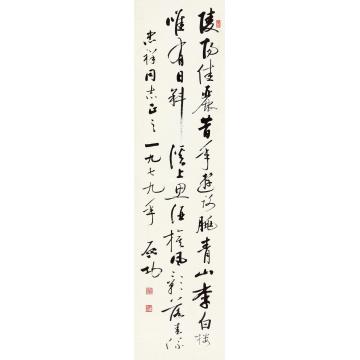 陵阳佳丽昔年游谢朓青山李白楼
唯有日斜溪上思酒旗风影落春流
忠祥同志正之一九七九年启功